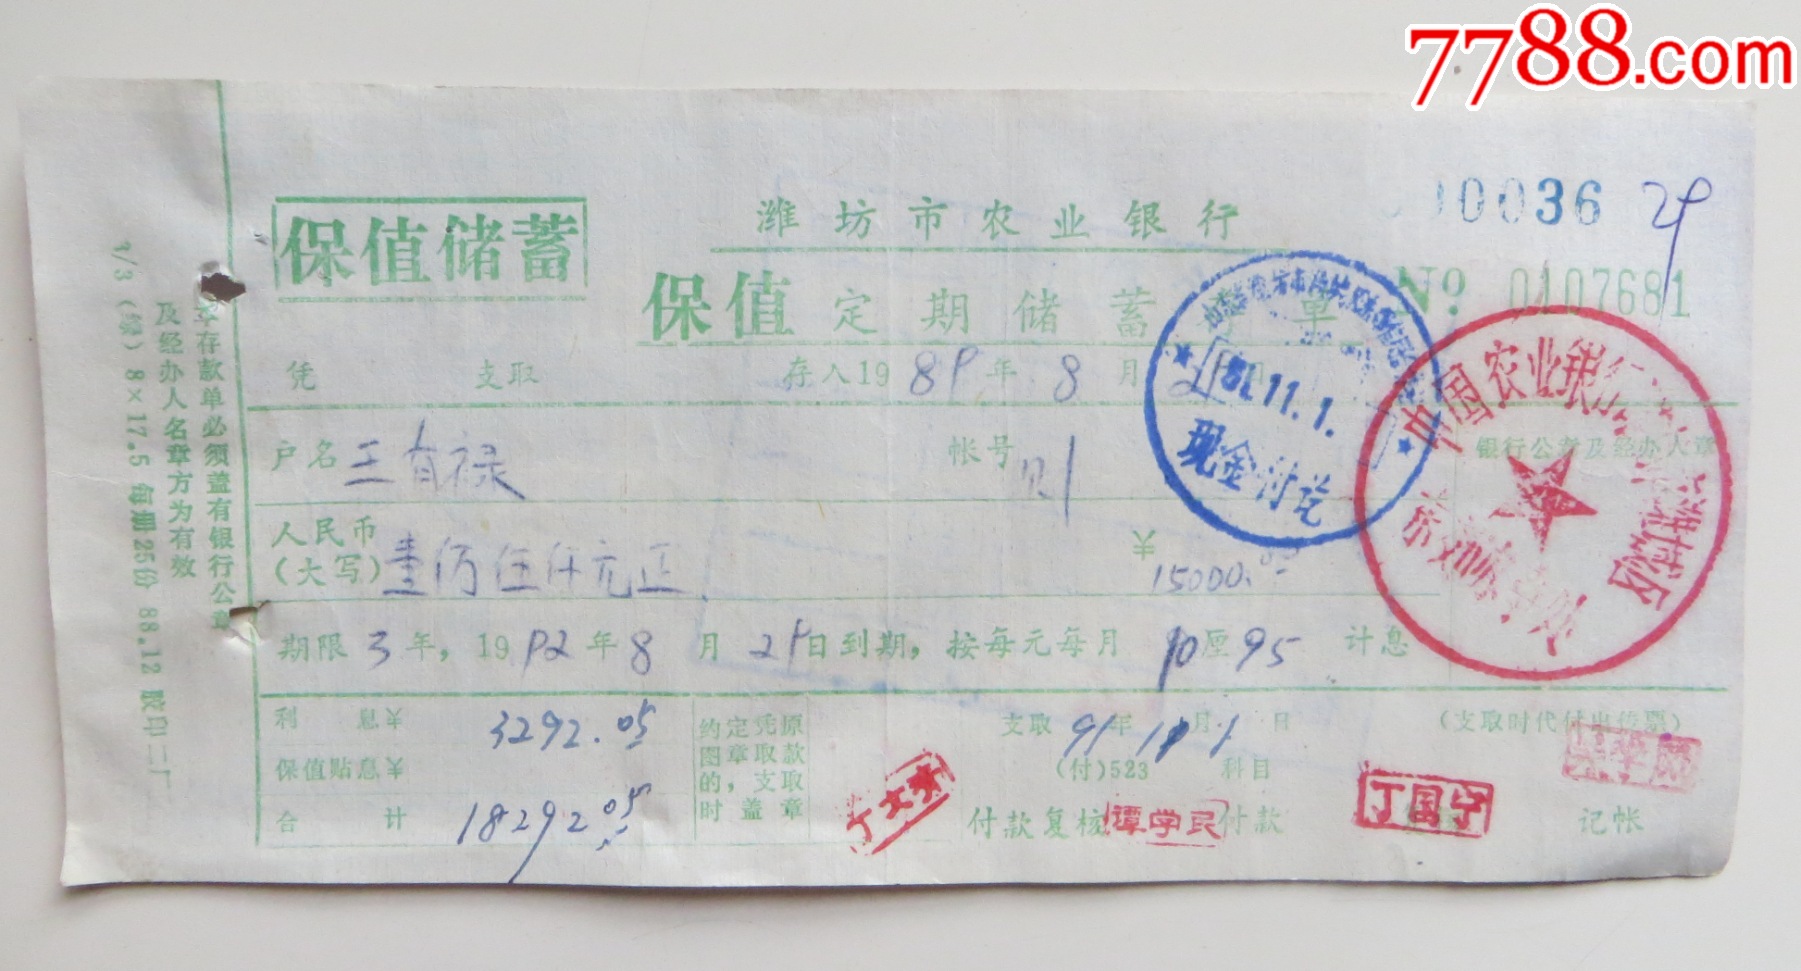 7788.com
保值储蓄
潍坊市农业银行
0036 29
保值定期储蓄 单
№ 0107681
凭 支取 存入1989年8月
户名 王有禄 帐号
银行公章及经办人章
人民币
(大写) 壹万伍仟元正 ¥ 15000.
期限3年，1992年8月29日到期，按每元每月10厘95计息
利息¥ 3292.05
保值贴息¥
合计 18292.05
约定凭原
图章取款
的，支取
时盖章
支取91年11月1日 (支取时代付出传票)
(付)523 科目
付款复核 谭学民 付款 丁国宁 记帐
11.1.
现金付讫
中国农业银行
本存款单必须盖有银行公章
及经办人名章方为有效
1/3(绿) 8×17.5 每捆25份 88.12 胶印二厂